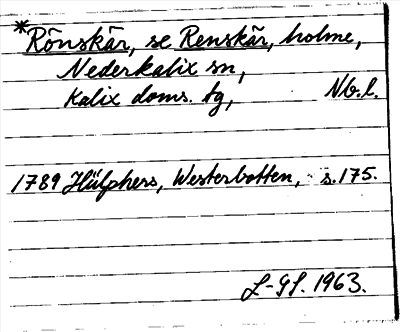 *Rönskär, se Renskär, holme,
Nederkalix sn,
Kalix doms. tg, Nb.l.
1789 Hülphers, Westerbotten, s.175.
L-GL. 1963.